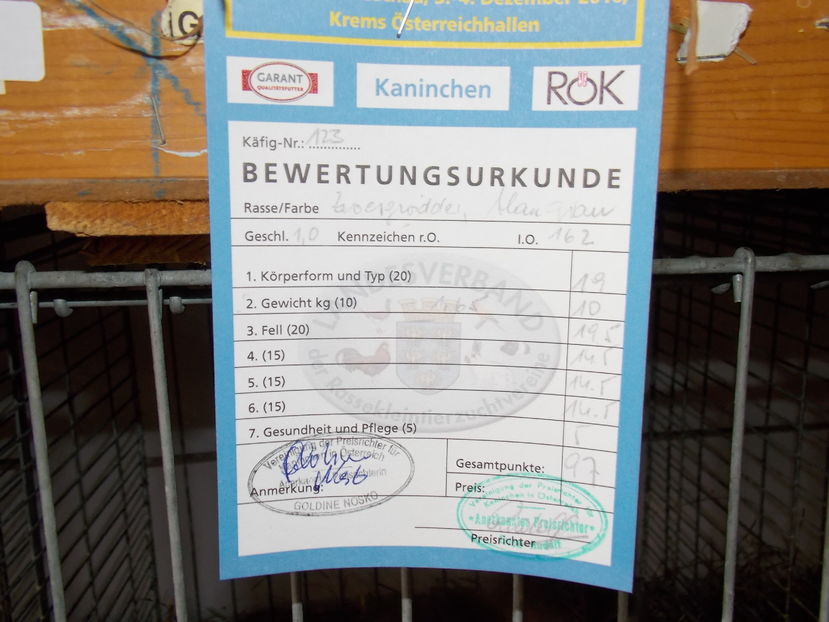 Krems Österreichhallen
GARANT
QUALITÄTSFUTTER
Kaninchen
RÖK
Käfig-Nr.: 123
BEWERTUNGSURKUNDE
Rasse/Farbe
Geschl. 1,0 Kennzeichen r.O. l.O. 162
1. Körperform und Typ (20) 19
2. Gewicht kg (10) 10
3. Fell (20) 19,5
4. (15) 14.5
5. (15) 14.5
6. (15) 14.5
7. Gesundheit und Pflege (5) 5
LANDESVERBAND
der Rassekleintierzuchtvereine
Gesamtpunkte: 97
Vereinigung der Preisrichter für
in Österreich
GOLDINE NOSKO
Anmerkung:
Preis:
Vereinigung der Preisrichter
Kaninchen in Österreich
Anerkannter Preisrichter
Preisrichter